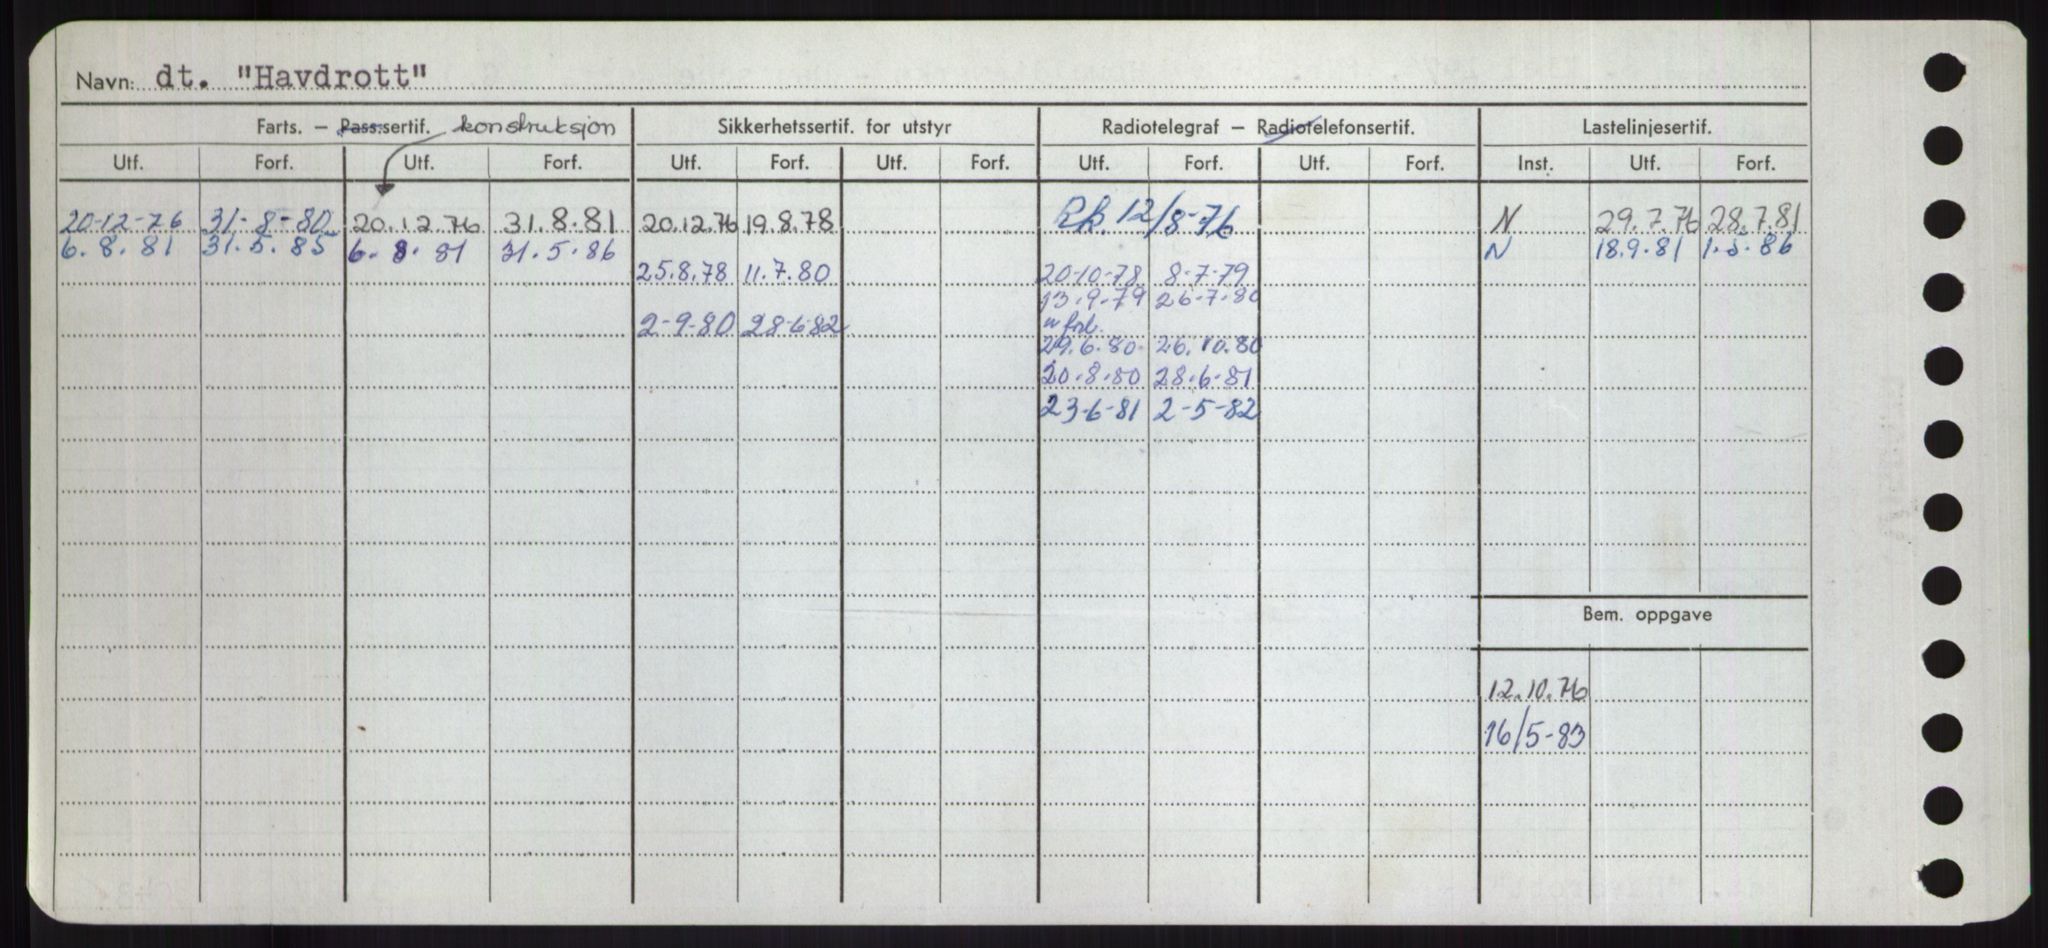 Navn: dt. "Havdrott"
Farts. – Pass.sertif. konstruksjon Sikkerhetssertif. for utstyr Radiotelegraf – Radiotelefonsertif. Lastelinjesertif.
Utf. Forf. Utf. Forf. Utf. Forf. Utf. Forf. Utf. Forf. Utf. Forf. Inst. Utf. Forf.
20-12-76 31-8-80 20.12.76 31.8.81 20.12.76 19.8.78 12/8-76 N 29.7.76 28.7.81
6.8.81 31.5.85 6.8.81 31.5.86 N 18.9.81 1.5.86
25.8.78 11.7.80 20-10-78 8-7-79
13.9.79 26.7.80
2-9-80 28-6-82 forl.
29.6.80 26.10.80
20.8.80 28.6.81
23-6-81 2-5-82
Bem. oppgave
12.10.76
16/5-83